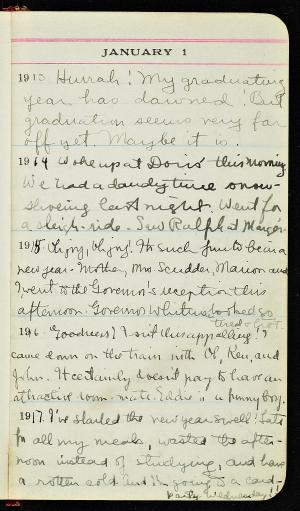 JANUARY 1
1913. Hurrah! My graduating
year has dawned! But
graduation seems very far
off yet. Maybe it is.
1914 Woke up at Doris' this morning.
We had a dandy time snow-
shoeing last night. Went for
a sleigh-ride. Saw Ralph at
1915. Oh, joy, Oh, joy! It's such fun to be in a
new year. Mother, Mrs Scudder, Marion and
I went to the Governor's reception this
afternoon. Governor looked so
tired
1916. Goodness! Isn't this appalling! I
came down on the train with Ken, and
John. It certainly doesn't pay to have an
attractive room-mate. Eddie is a funny boy.
1917. I've started the new year swell! Late
for all my meals, wasted the after-
noon instead of studying, and have
a rotten cold and I'm going to a card-
party Wednesday!!